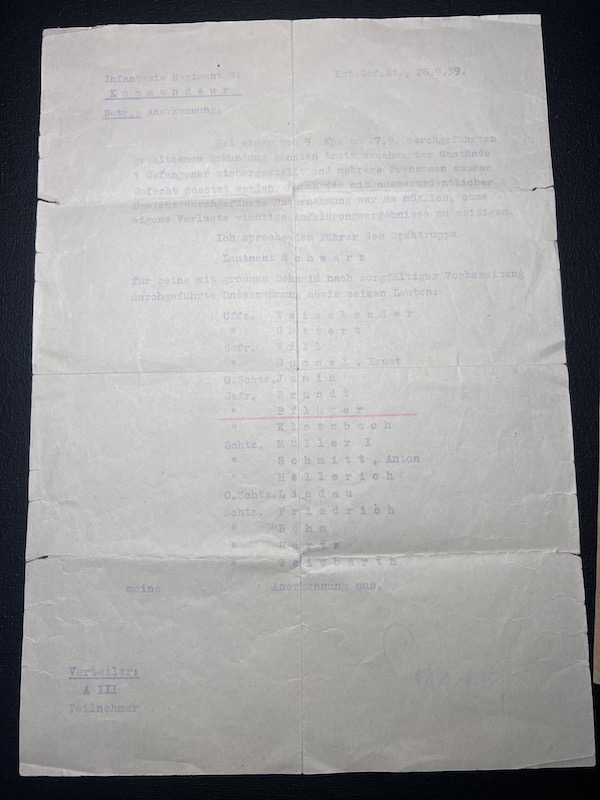 Infanterie Regiment 81 Rgt.Gef.St., 28.9.39.
K o m m a n d e u r
Betr.: Anerkennung.
Bei einer von 9. Kp. am 27.9. durchgeführten
gewaltsamen Erkundung konnten trotz erschwerter Umstände
1 Gefangener sichergestellt und mehrere Franzosen ausser
Gefecht gesetzt werden. Durch die mit ausserordentlicher
Umsicht durchgeführte Unternehmung war es möglich, ohne
eigene Verluste wichtige Aufklärungsergebnisse zu zeitigen.
Ich spreche dem Führer des Spähtrupps
Leutnant S c h w a r z
für seine mit grossem Schneid nach sorgfältiger Vorbereitung
durchgeführte Unternehmung sowie seinen Leuten:
Uffz. W e i s s b ä n d e r
" G ö t t e r t
Gefr. W i l l
" H u m m e l , Ernst
O.Schtz. J a m i n
Gefr. B r a n d t
" P f l ü g e r
" K l o t z b a c h
Schtz. M ü l l e r I
" S c h m i t t , Anton
" H e l l e r i c h
O.Schtz. L i n d a u
Schtz. F r i e d r i c h
" B ö h m
"
" W e i s b a r t h
meine Anerkennung aus.
Verteiler:
A III
Teilnehmer